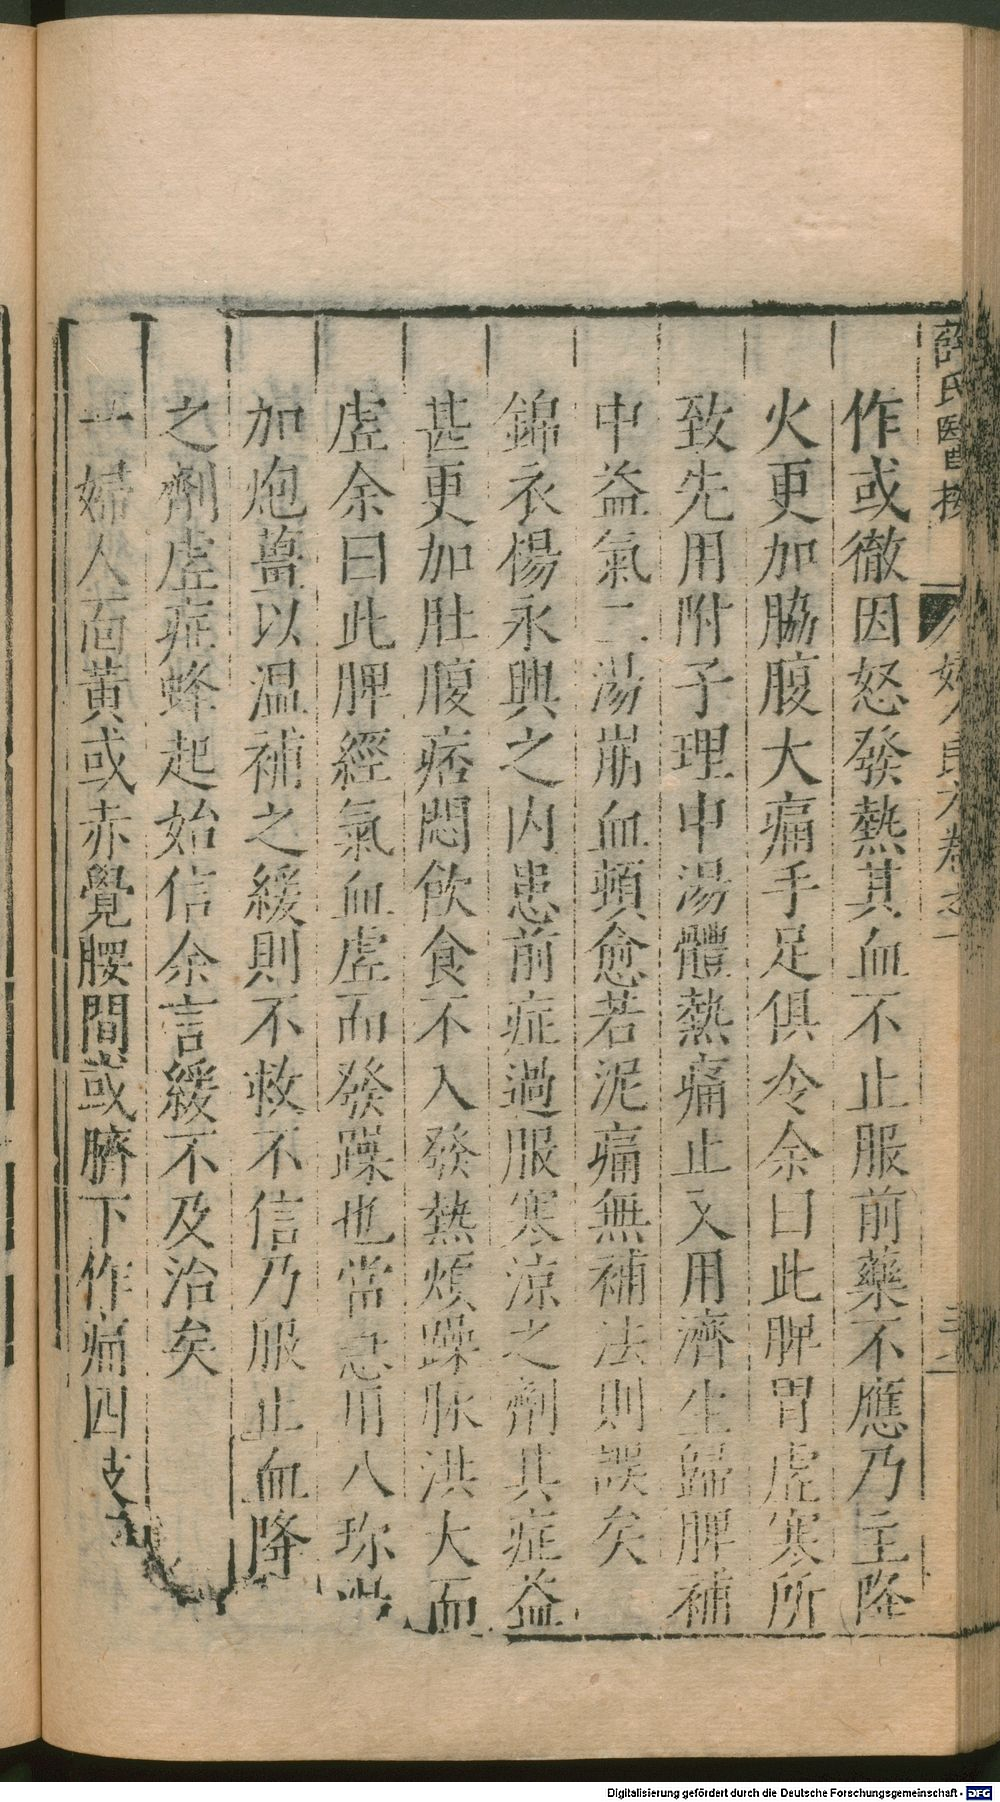 薛氏醫按 婦人良方卷之一
作或徹因怒發熱其血不止服前藥不應乃主降
火更加脇腹大痛手足俱冷余曰此脾胃虛寒所
致先用附子理中湯體熱痛止又用濟生歸脾補
中益氣二湯崩血頓愈若泥痛無補法則誤矣
錦衣楊永興之内患前症過服寒涼之劑其症益
甚更加肚腹痞悶飲食不入發熱煩躁脉洪大而
虛余曰此脾經氣血虛而發躁也當急用八珍湯
加炮薑以温補之緩則不救不信乃服止血降
之劑虛症蜂起始信余言緩不及治矣
一婦人面黃或赤覺腰間或臍下作痛四支
Digitalisierung gefördert durch die Deutsche Forschungsgemeinschaft - DFG